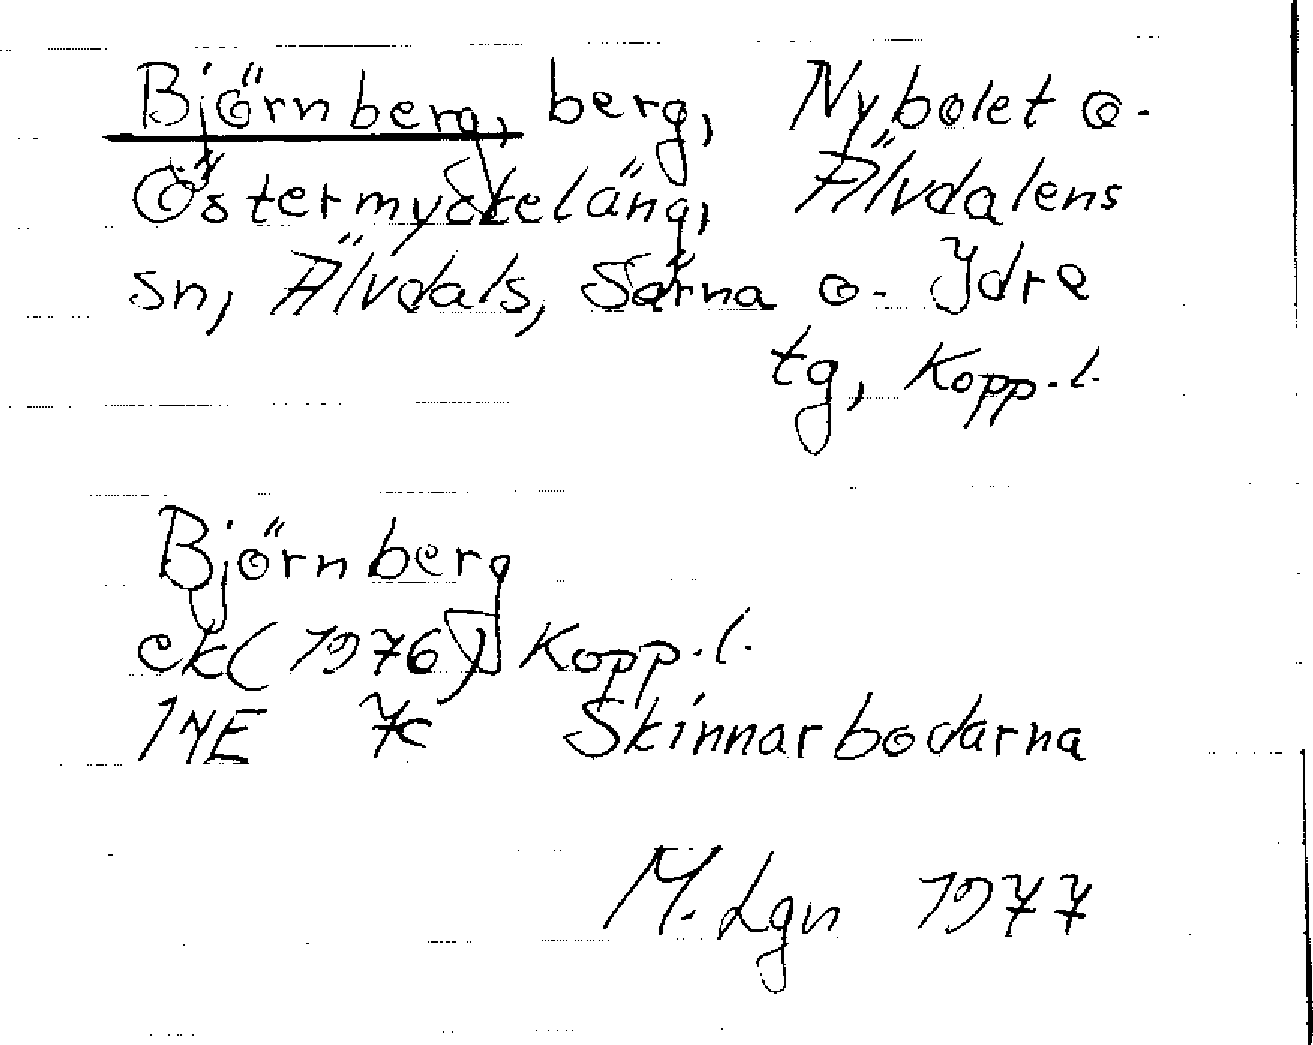 Björnberg, berg, Nybolet o.
Östermyckeläng, Älvdalens
sn, Älvdals, Särna o. Idre
tg, Kopp.l.
Björnberg
ek(1976) Kopp.l.
14E 7c Skinnarbodarna
M. Lgn 1977